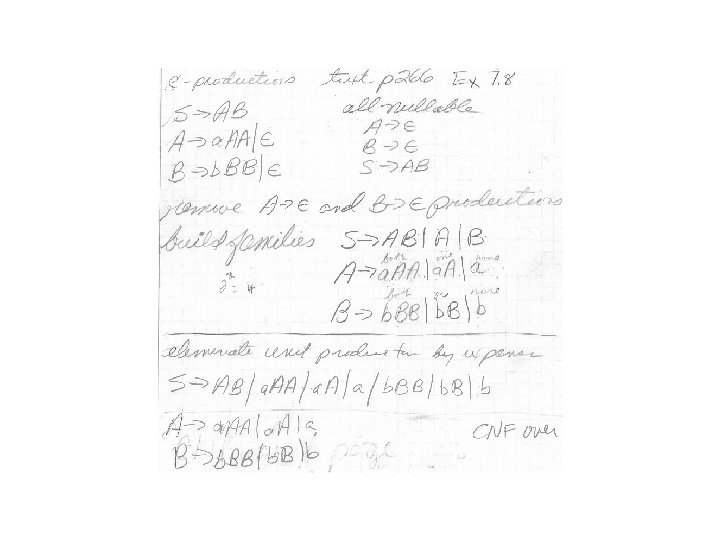 ε-productions text p266 Ex 7.8
S→AB all nullable
A→aAA|ε A→ε
B→bBB|ε B→ε
S→AB
remove A→ε and B→ε productions
build families S→AB|A|B
both one none
A→aAA|aA|a
both one none
B→bBB|bB|b
eliminate unit production by
S→AB/aAA/aA/a/bBB/bB/b
A→aAA|aA|a
CNF over
B→bBB|bB|b page